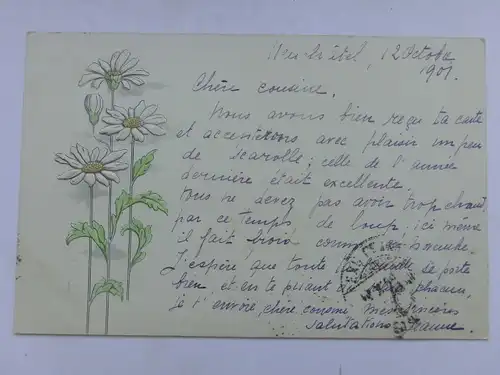 Neuchâtel, 12 Octobre
1901.
Chère cousine,
Nous avons bien reçu ta carte
et accepterons avec plaisir un peu
de scarolle; celle de l'année
dernière était excellente.
Vous ne devez pas avoir trop chaud
par ce temps de loup; ici même
il fait froid comme
J'espère que toute la famille se porte
bien, et en te priant de chacun,
je t'envoie, chère cousine, mes sincères
salutations Jeanne.